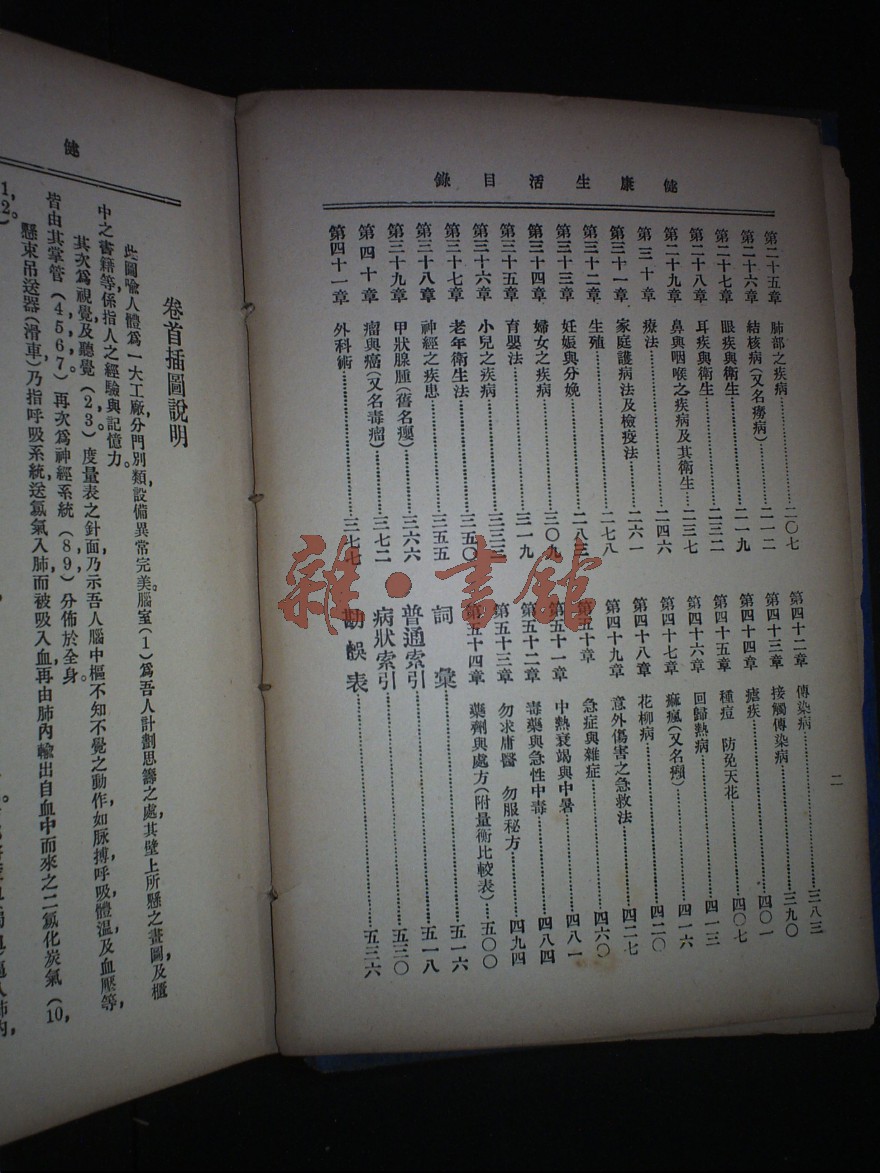 健康生活目錄
二
第二十五章 肺部之疾病 二〇七
第二十六章 結核病(又名癆病) 二一二
第二十七章 眼疾與衛生 二一九
第二十八章 耳疾與衛生 二三二
第二十九章 鼻與咽喉之疾病及其衛生 二三七
第三十章 療法 二四六
第三十一章 家庭護病法及檢疫法 二六一
第三十二章 生殖 二七八
第三十三章 妊娠與分娩 二八三
第三十四章 婦女之疾病 三〇九
第三十五章 育嬰法 三一九
第三十六章 小兒之疾病 三三三
第三十七章 老年衛生法 三五〇
第三十八章 神經之疾患 三五五
第三十九章 甲狀腺腫(舊名癭) 三六六
第四十章 瘤與癌(又名毒瘤) 三七二
第四十一章 外科術 三七七
第四十二章 傳染病 三八三
第四十三章 接觸傳染病 三九〇
第四十四章 瘧疾 四〇一
第四十五章 種痘 防免天花 四〇七
第四十六章 回歸熱病 四一三
第四十七章 痲瘋(又名癩) 四一六
第四十八章 花柳病 四二〇
第四十九章 意外傷害之急救法 四二七
第五十章 急症與雜症 四六〇
第五十一章 中熱衰竭與中暑 四八一
第五十二章 毒藥與急性中毒 四八四
第五十三章 勿求庸醫 勿服秘方 四九四
第五十四章 藥劑與處方(附量衡比較表) 五〇〇
詞彙 五一六
普通索引 五一八
病狀索引 五三〇
勘誤表 五三六
雜·書館
健
卷首插圖說明
此圖喻人體為一大工廠,分門別類,設備異常完美。腦室(1)為吾人計劃思籌之處,其壁上所懸之畫圖,及櫃
中之書籍等,係指人之經驗與記憶力。
其次為視覺及聽覺(2,3)。度量表之針面,乃示吾人腦中樞不知不覺之動作,如脉搏,呼吸,體溫,及血壓等,
皆由其掌管(4,5,6,7)。再次為神經系統(8,9),分佈於全身。
懸束吊送器(滑車)乃指呼吸系統,送氧氣入肺,而被吸入血,再由肺內輸出自血中而來之二氧化炭氣(10,
1,2)。